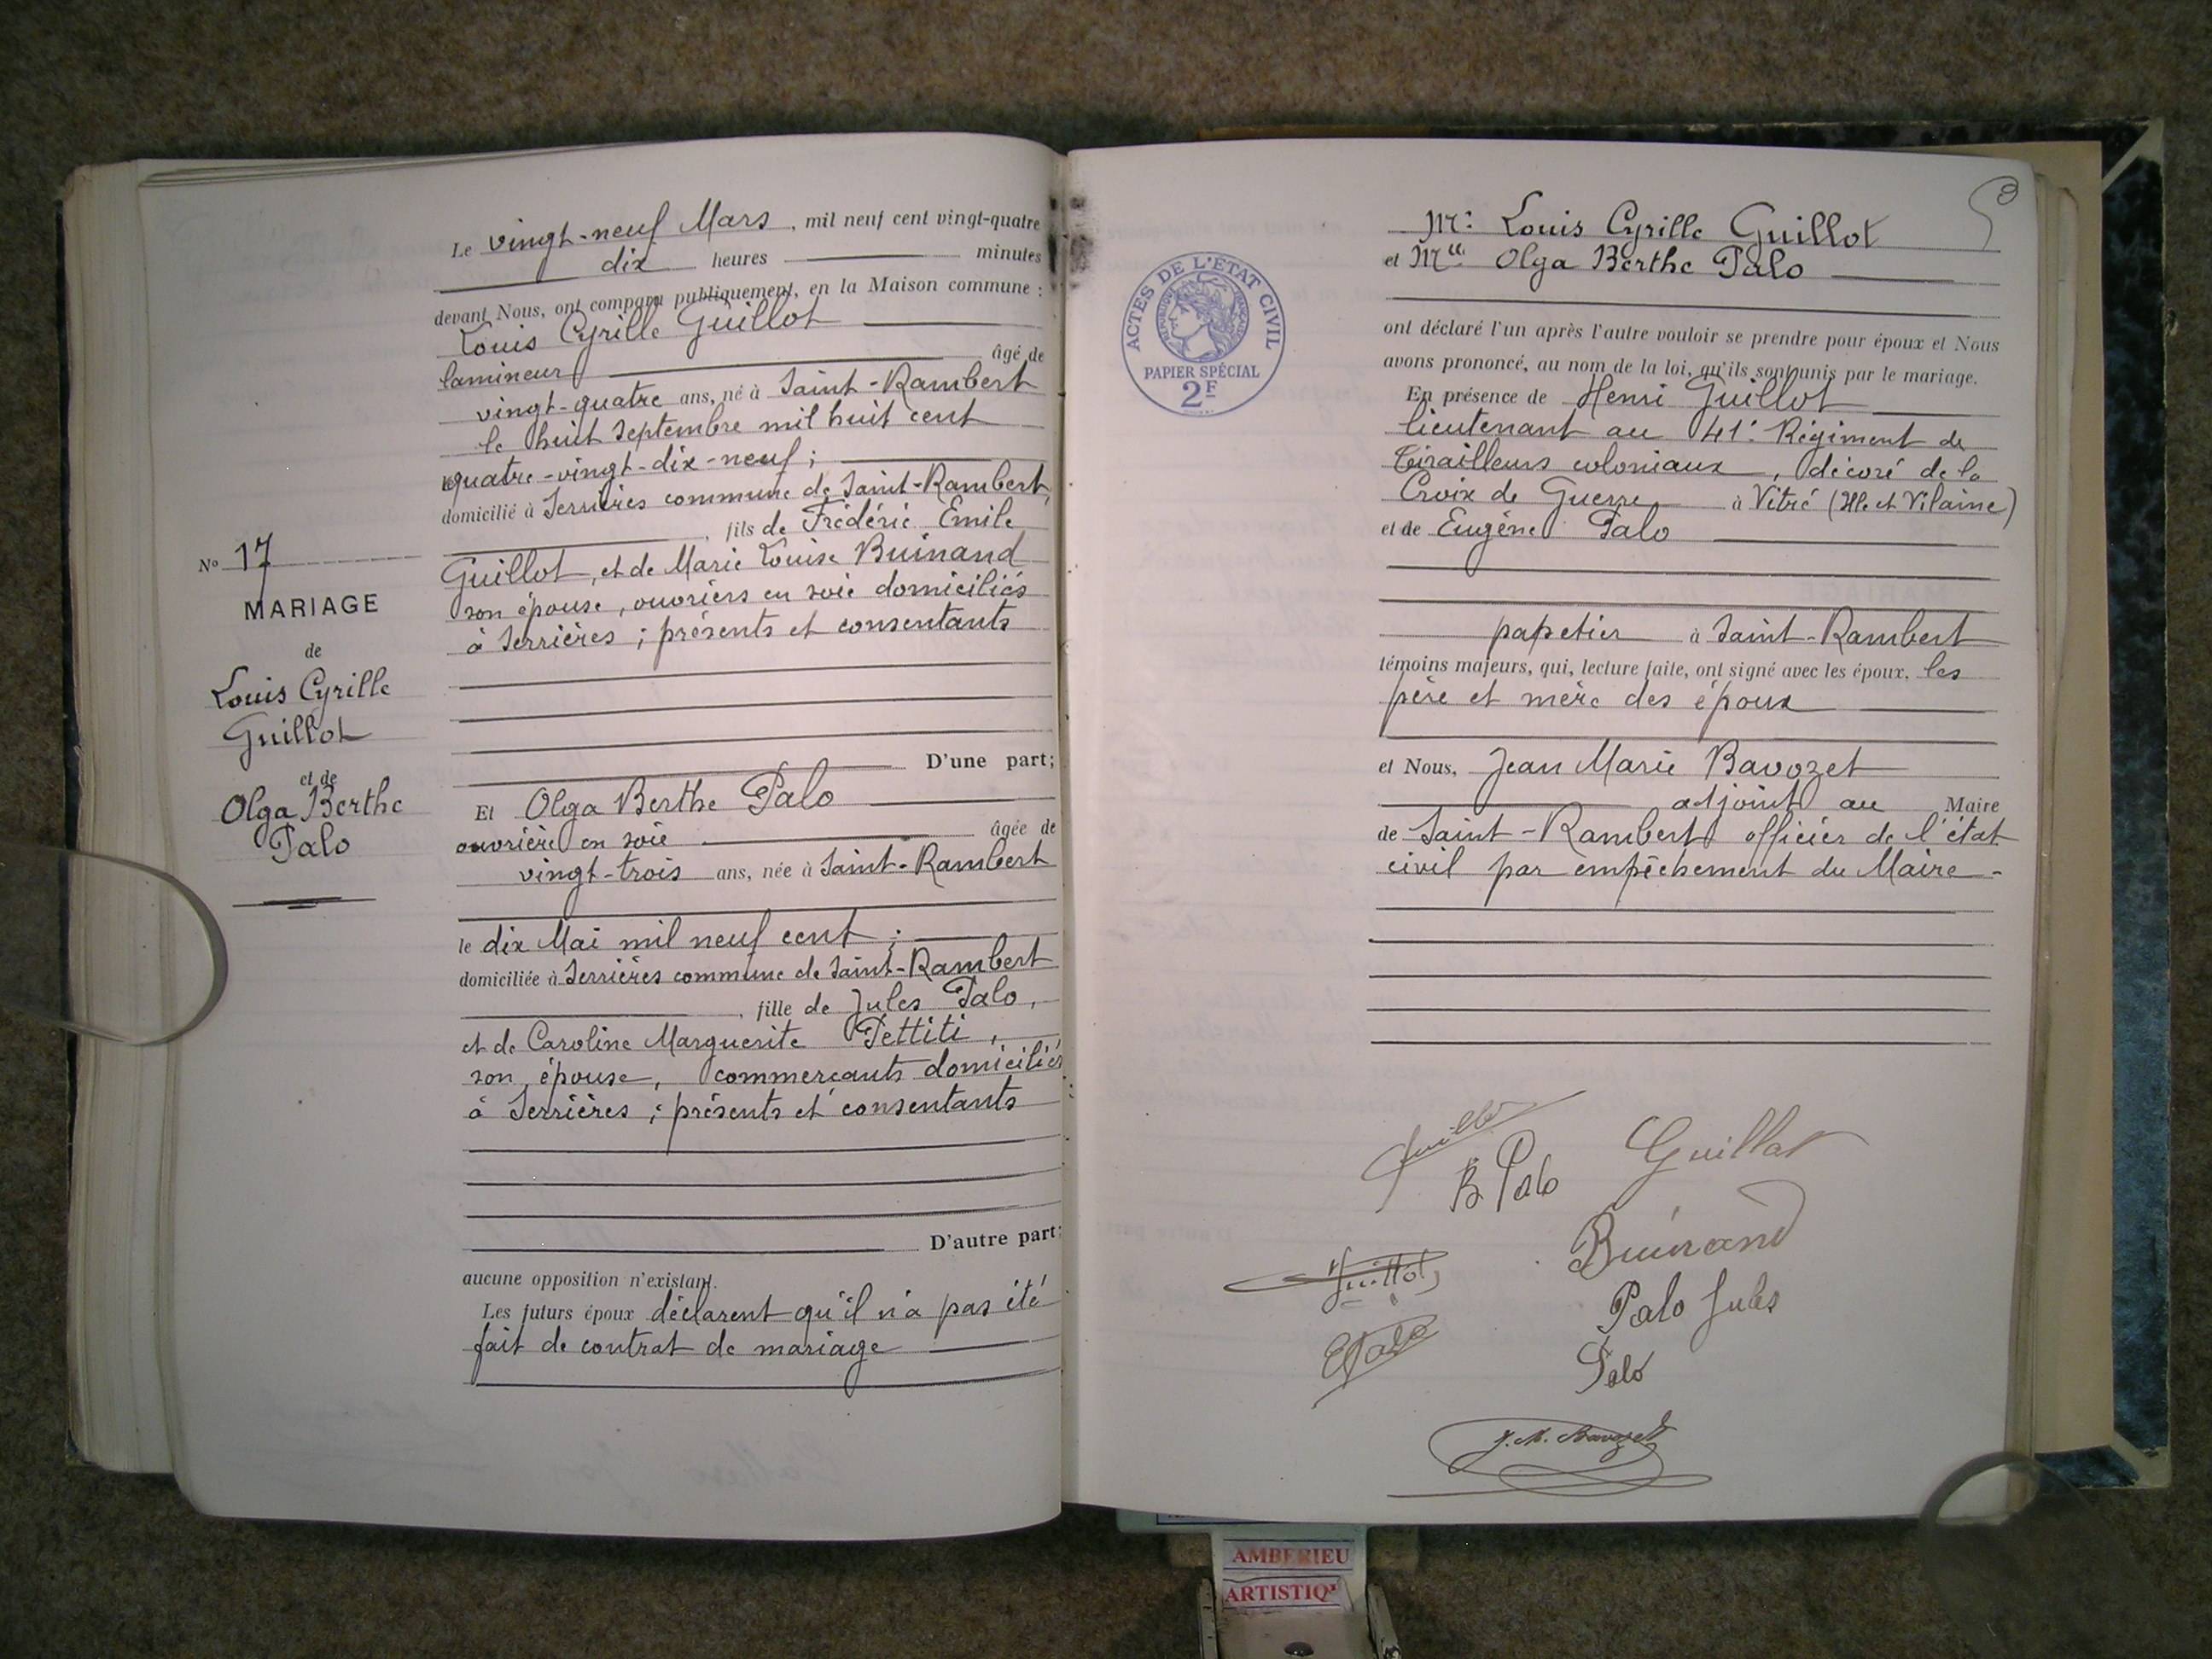 Le vingt-neuf Mars, mil neuf cent vingt-quatre
dix heures minutes
devant Nous, ont comparu publiquement, en la Maison commune :
Louis Cyrille Guillot
lamineur âgé de
vingt-quatre ans, né à Saint-Rambert
le huit septembre mil huit cent
quatre-vingt-dix-neuf ;
domicilié à Serrières commune de Saint-Rambert,
, fils de Frédéric Emile
Guillot, et de Marie Louise Buinand
son épouse, ouvriers en soie domiciliés
à Serrières ; présents et consentants
D'une part;
Nº 17
MARIAGE
de
Louis Cyrille
Guillot
et de
Olga Berthe
Palo
Et Olga Berthe Palo
ouvrière en soie âgée de
vingt-trois ans, née à Saint-Rambert
le dix Mai mil neuf cent ;
domiciliée à Serrières commune de Saint-Rambert
, fille de Jules Palo,
et de Caroline Marguerite Pettiti,
son épouse, commerçants domiciliés
à Serrières ; présents et consentants
D'autre part;
aucune opposition n'existant.
Les futurs époux déclarent qu'il n'a pas été
fait de contrat de mariage
ACTES DE L'ETAT CIVIL
REPUBLIQUE FRANÇAISE
PAPIER SPÉCIAL
2F
Mr. Louis Cyrille Guillot
et Mlle Olga Berthe Palo
ont déclaré l'un après l'autre vouloir se prendre pour époux et Nous
avons prononcé, au nom de la loi, qu'ils sont unis par le mariage.
En présence de Henri Guillot
lieutenant au 41e Régiment de
Tirailleurs coloniaux, décoré de la
Croix de Guerre à Vitré (Ille et Vilaine)
et de Eugène Palo
papetier à Saint-Rambert
témoins majeurs, qui, lecture faite, ont signé avec les époux, les
père et mère des époux
et Nous, Jean Marie Bavozet
adjoint au Maire
de Saint-Rambert officier de l'état
civil par empêchement du Maire -
Guillot
B Palo
Guillot
Buinand
Guillot
Palo Jules
EPalo
Palo
J. M. Bavozet
AMBERIEU
ARTISTIQ